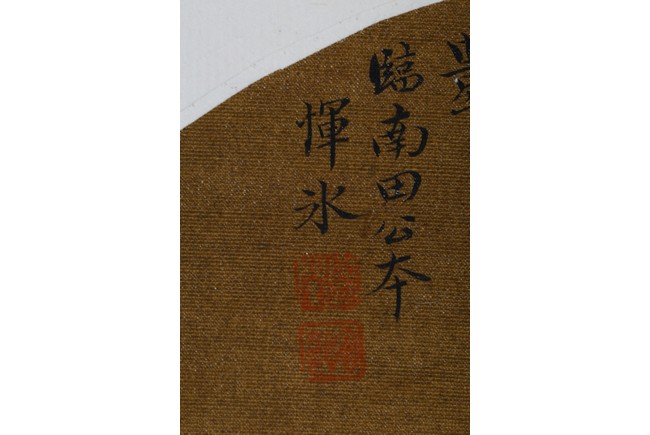 臨南田公本
惲冰